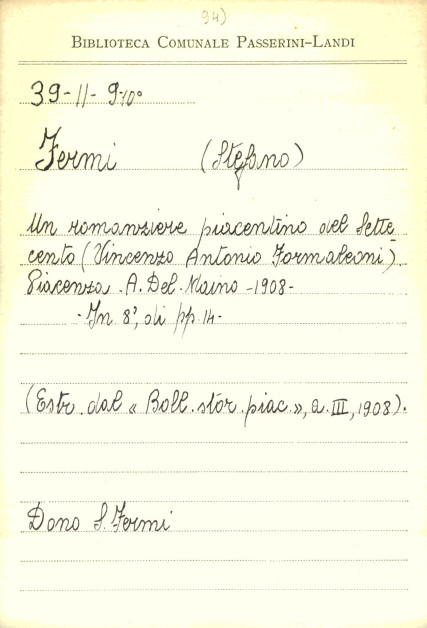 94)
BIBLIOTECA COMUNALE PASSERINI-LANDI
39-11-9-10°
Fermi (Stefano)
Un romanziere piacentino del Sette-
cento (Vincenzo Antonio Formaleoni).
Piacenza. A. Del. Maino -1908-
- In 8°, di pp. 14-
(Estr. dal « Boll. stor. piac. », a. III, 1908).
Dono S. Fermi